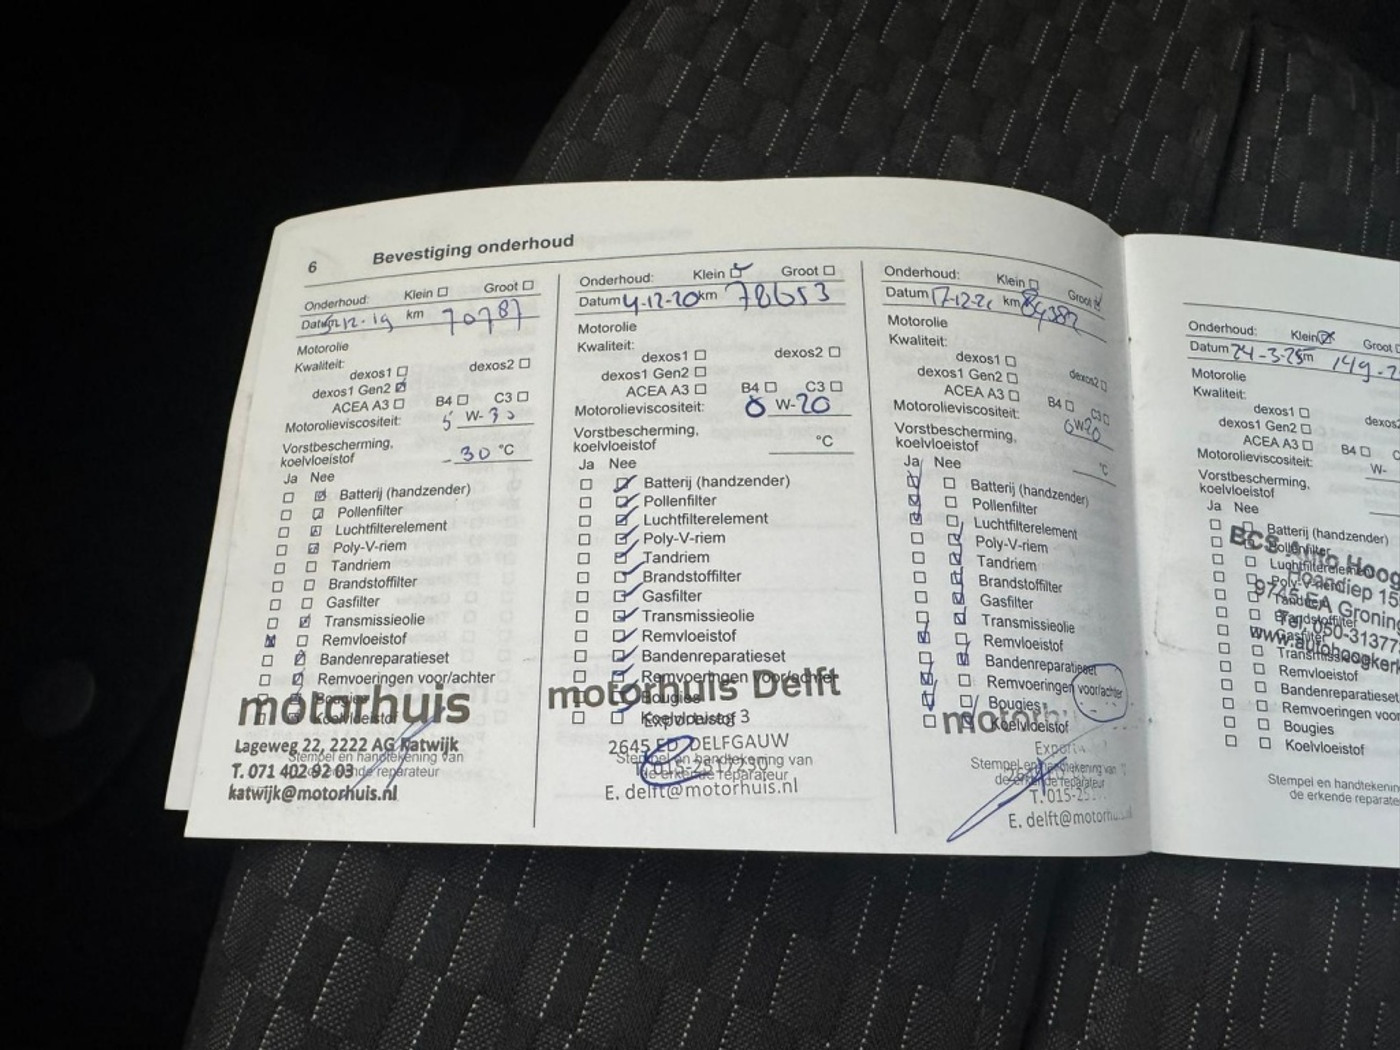 6 Bevestiging onderhoud
Onderhoud: Klein Groot
Datum 12-19 km 70787
Motorolie
Kwaliteit:
dexos1 dexos2
dexos1 Gen2
ACEA A3 B4 C3
Motorolieviscositeit: 5 W-30
Vorstbescherming,
koelvloeistof -30 °C
Ja Nee
Batterij (handzender)
Pollenfilter
Luchtfilterelement
Poly-V-riem
Tandriem
Brandstoffilter
Gasfilter
Transmissieolie
Remvloeistof
Bandenreparatieset
Remvoeringen voor/achter
Bougies
Koelvloeistof
motorhuis
Lageweg 22, 2222 AG Katwijk
Stempel en handtekening van
T. 071 402 92 03
de erkende reparateur
katwijk@motorhuis.nl
Onderhoud: Klein Groot
Datum 4-12-20 km 78653
Motorolie
Kwaliteit:
dexos1 dexos2
dexos1 Gen2
ACEA A3 B4 C3
Motorolieviscositeit: 0 W-20
Vorstbescherming,
koelvloeistof °C
Ja Nee
Batterij (handzender)
Pollenfilter
Luchtfilterelement
Poly-V-riem
Tandriem
Brandstoffilter
Gasfilter
Transmissieolie
Remvloeistof
Bandenreparatieset
Remvoeringen voor/achter
motorhuis Delft
Bougies
Koelvloeistof 3
2645 ED DELFGAUW
Stempel en handtekening van
de erkende reparateur
E. delft@motorhuis.nl
Onderhoud: Klein Groot
Datum 17-12-21 km 84382
Motorolie
Kwaliteit:
dexos1 dexos2
dexos1 Gen2
ACEA A3 B4 C3
Motorolieviscositeit: 0W20
Vorstbescherming,
koelvloeistof °C
Ja Nee
Batterij (handzender)
Pollenfilter
Luchtfilterelement
Poly-V-riem
Tandriem
Brandstoffilter
Gasfilter
Transmissieolie
Remvloeistof
Bandenreparatieset
Remvoeringen voor/achter
Bougies
Koelvloeistof
Stempel en handtekening van
de erkende reparateur
E. delft@motorhu
Onderhoud: Klein Groot
Datum 24-3-25 km 149-
Motorolie
Kwaliteit:
dexos1 dexos
dexos1 Gen2
ACEA A3 B4 C
Motorolieviscositeit: W-
Vorstbescherming,
koelvloeistof
Ja Nee
Batterij (handzender)
Pollenfilter
BCS Auto Hoog
Luchtfilterelement
Hoendiep 15
Poly-V-riem
9745 EA Groning
Tandriem
Brandstoffilter
Tel. 050-3137
Gasfilter
www.autohoogker
Transmissieolie
Remvloeistof
Bandenreparatieset
Remvoeringen voor
Bougies
Koelvloeistof
Stempel en handtekening
de erkende reparate